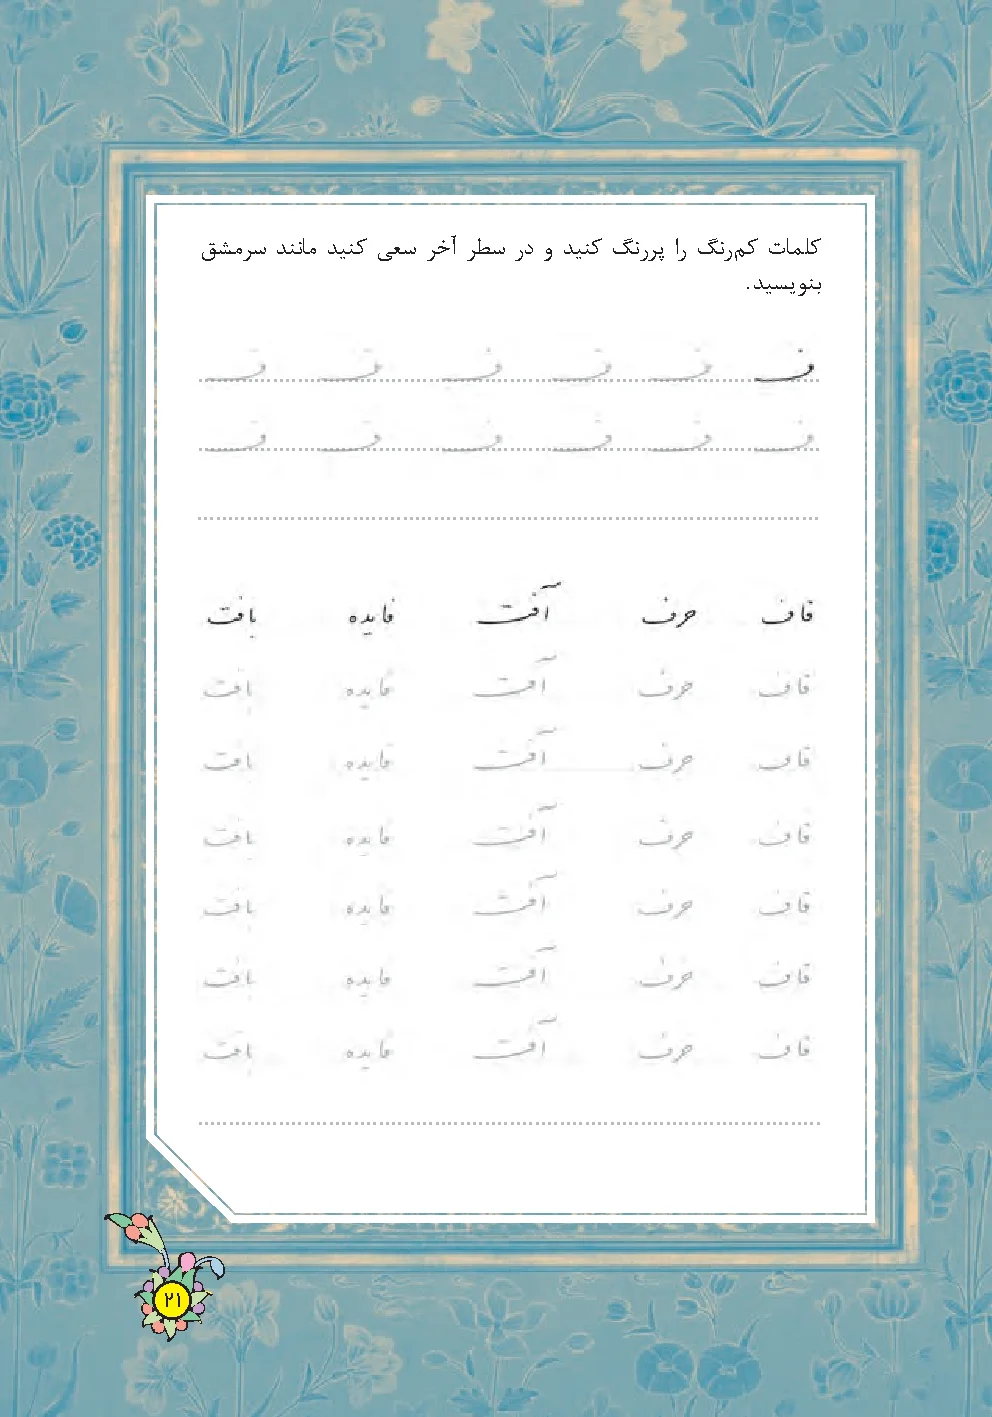 کلمات کم‌رنگ را پررنگ کنید و در سطر آخر سعی کنید مانند سرمشق
بنویسید.
ف ف ف ف ف ف
ف ف ف ف ف ف
قاف حرف آفت فایده بافت
قاف حرف آفت فایده بافت
قاف حرف آفت فایده بافت
قاف حرف آفت فایده بافت
قاف حرف آفت فایده بافت
قاف حرف آفت فایده بافت
قاف حرف آفت فایده بافت
۲۱